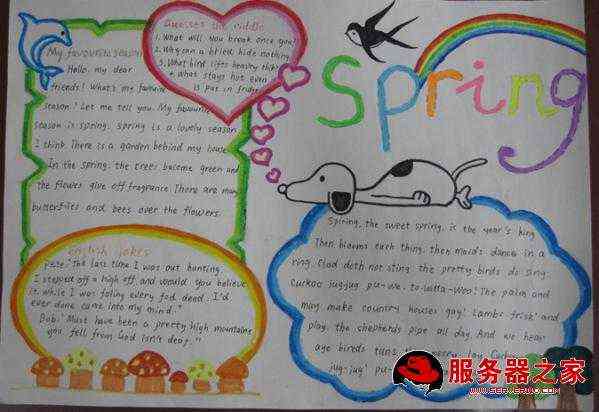 Guesses the riddle
1. What will you break once you
2. Why can a bried hide nothing
3. What bird lifts heavy thi
4. What stays hot even
is put in fridge
Spring
My favourite season
Hallo, my dear
friends! What's my favourite
season? Let me tell you. My favourite
season is spring. Spring is a lovely season
I think. There is a garden behind my house.
In the spring, the trees become green and
the flowers give off fragrance. There are many
butterflies and bees over the flowers.
English jokes
Pete: "The last time I was out hunting,
I stepped off a high off and would you believe
it, while I was faling every fod dead I'd
ever done came into my mind."
Bob: "Must have been a pretty high mountaine
you fell from God isn't deaf."
Spring, the sweet spring, is the year's king
Then blooms each thing, then maids dance in a
ring. Clod doth not sting. the pretty birds do sing.
Cuckoo jug-jug pu-we, to-witta-woo! The palm and
may make country houses gay! Lambs frisk and
play, the shepherds pipe all day. And we hear
age birds tune merry lay. Cuck
jug-jug! pu-
服务器之家
WWW.SERVERWO.COM